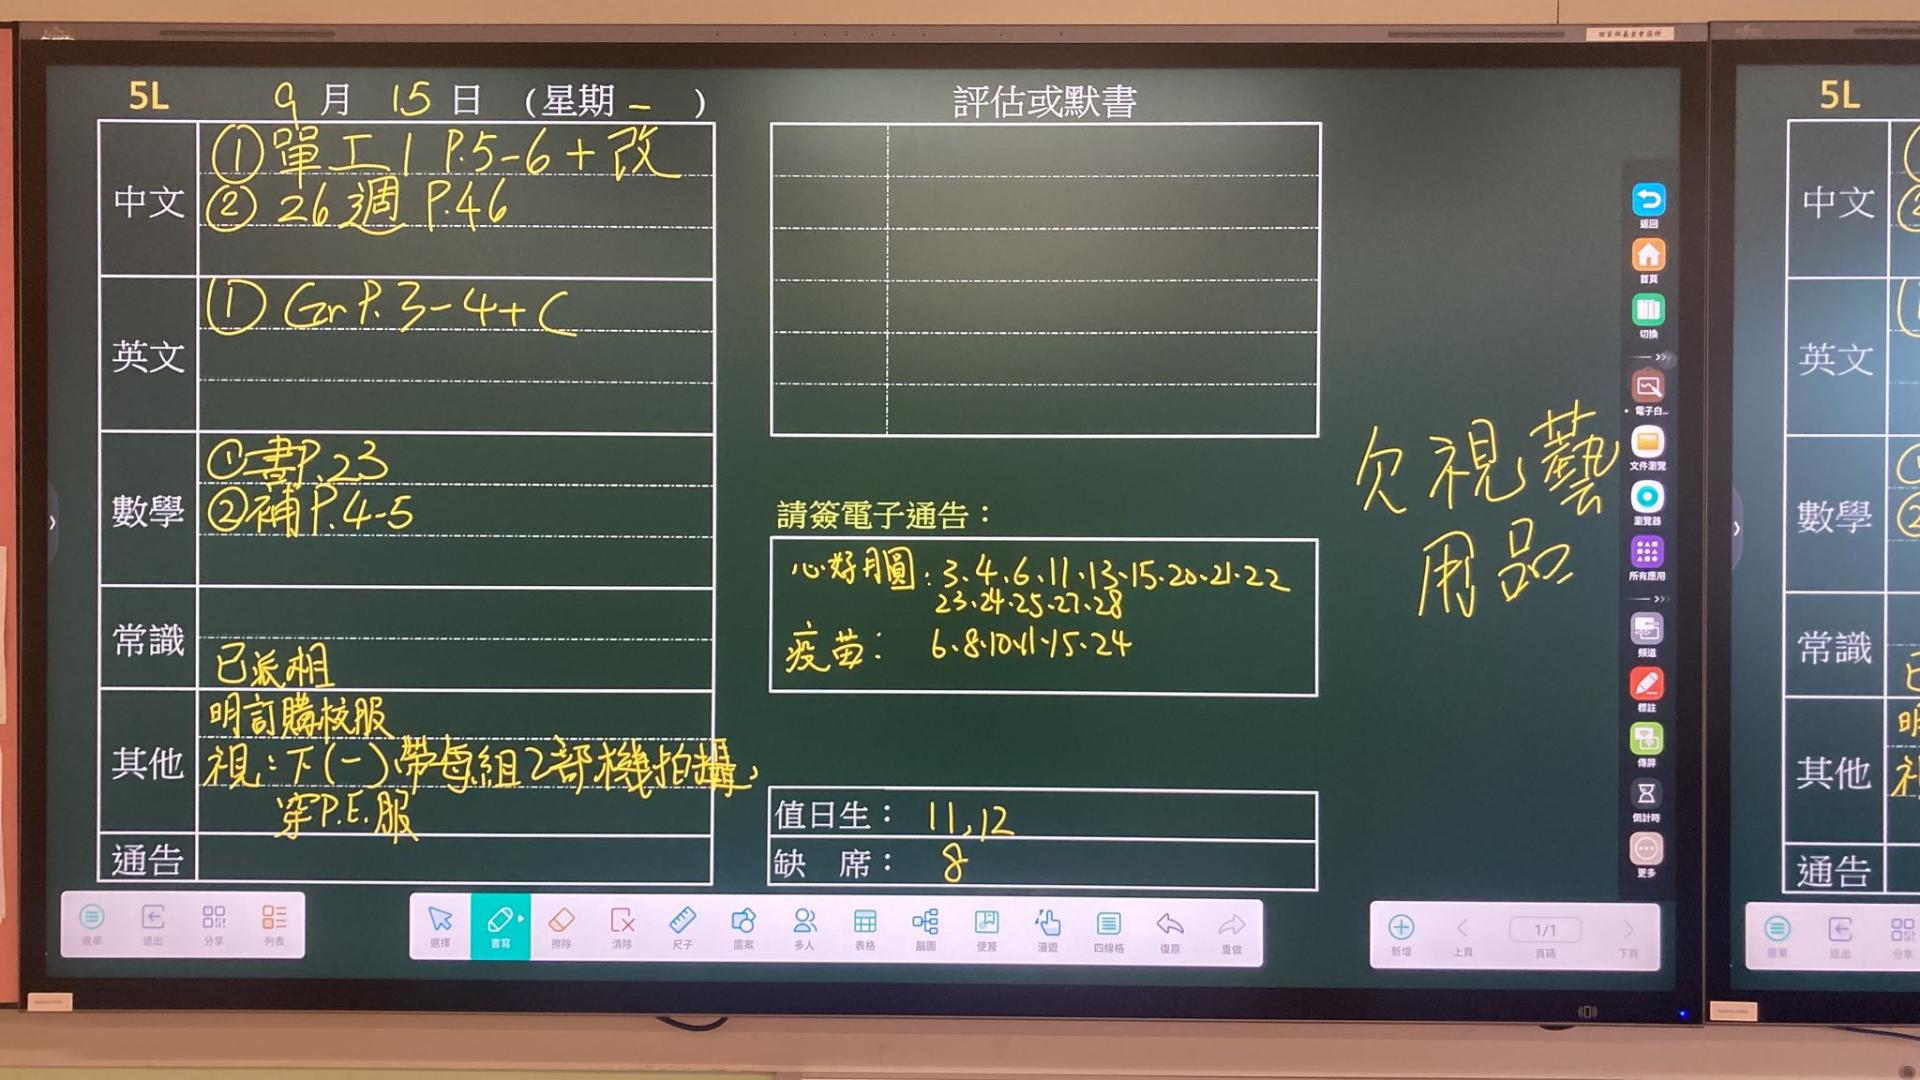 5L 9月15日(星期一)
中文
①單工1 P.5-6+改
②26週 P.46
英文
① Gr P.3-4+C
數學
①書P.23
②補P.4-5
常識
已派相
其他
明訂購校服
視:下(一)帶每組2部機拍攝,
穿P.E.服
通告
評估或默書
請簽電子通告:
心好月圓:3、4、6、11、13、15、20、21、22
23、24、25、27、28
疫苗: 6、8、10、11、15、24
值日生: 11,12
缺 席: 8
欠視藝
用品
返回
首頁
切換
電子白...
文件瀏覽
瀏覽器
所有應用
頻道
標註
傳屏
倒計時
更多
選單 退出 分享 列表
選擇 書寫 擦除 清除 尺子 圖案 多人 表格 腦圖 便簽 漫遊 四線格 復原 重做
新增 上頁 1/1 頁碼 下頁
5L
中文
英文
數學
常識
其他
通告
選單 退出 分享